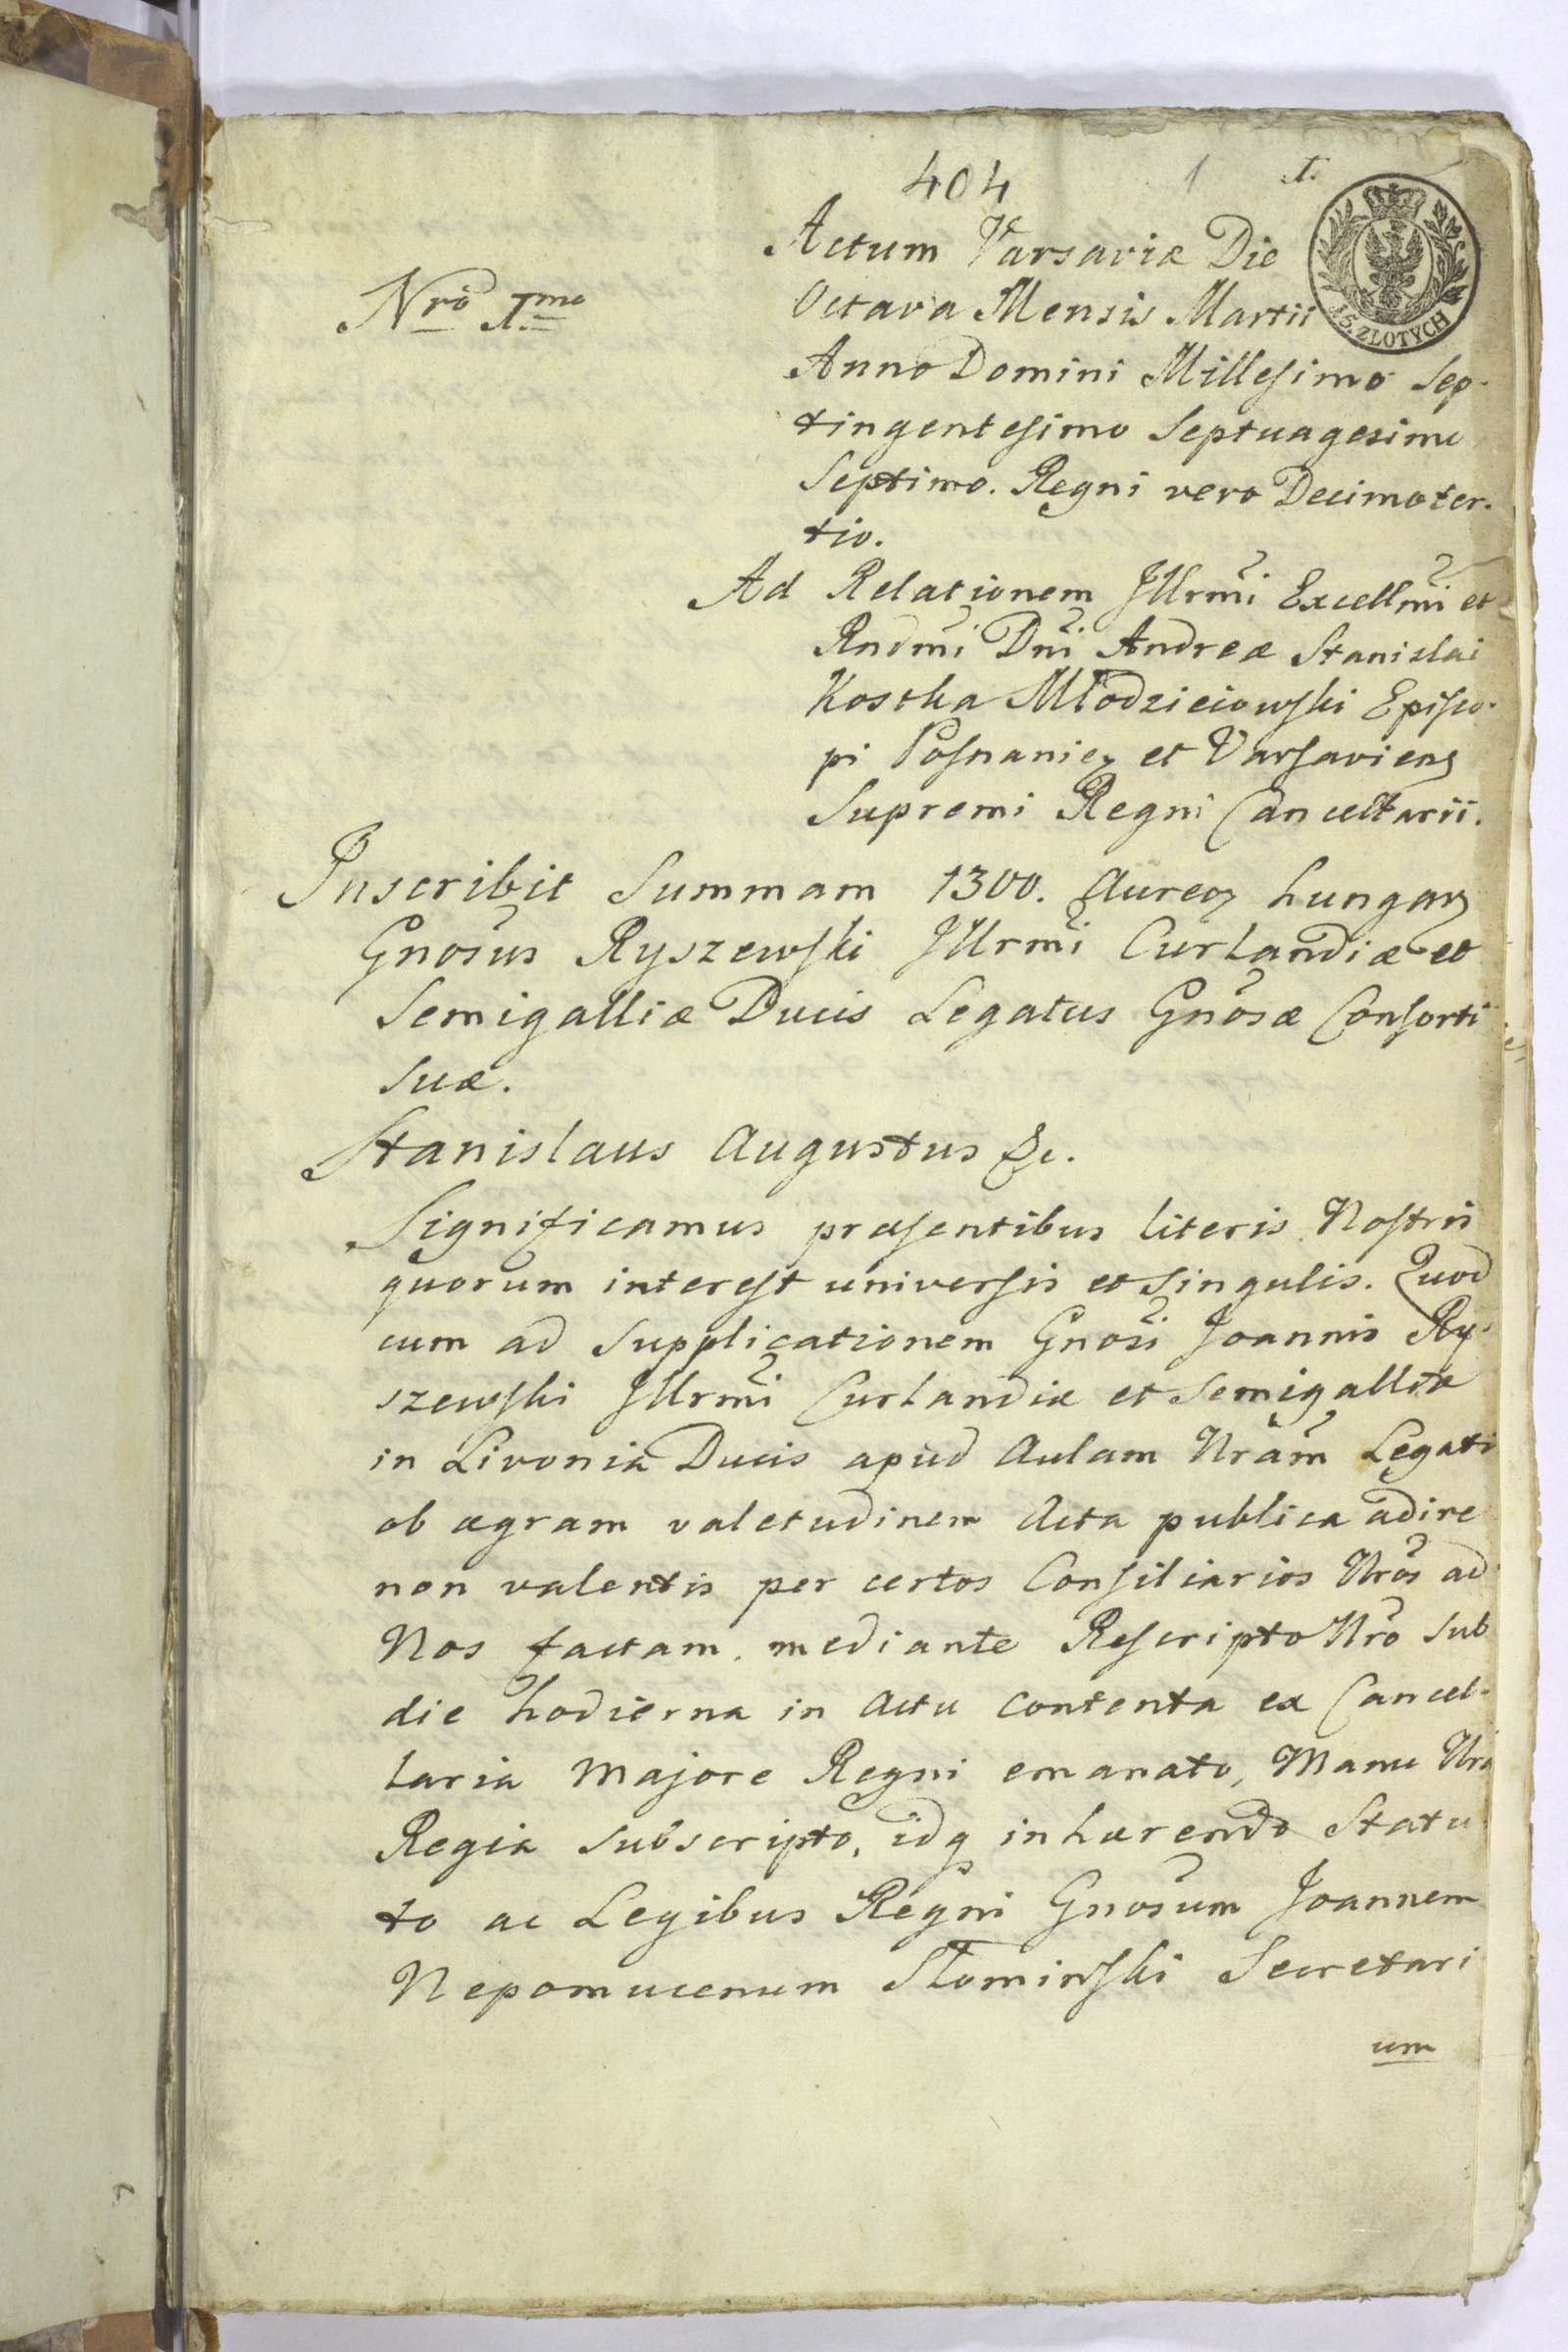 404 1 I.
15. ZŁOTYCH
Nrõ I.mo
Actum Varsaviæ Die
Octava Mensis Martii
Anno Domini Millesimo Sep-
tingentesimo Septuagesimo
Septimo. Regni vero Decimoter-
tio.
Ad Relationem Jllrmĩ Excellmĩ et
Rndmĩ Dnĩ Andreæ Stanislai
Kostka Młodzieiowski Episco-
pi Posnanien et Varsaviens
Supremi Regni Cancellarii.
Inscribit Summam 1300. Aureor hungar
Gnõsus Ryszewski Jllrmĩ Curlandiæ et
Semigalliæ Ducis Legatus Gnõsæ Consorti
Suæ.
Stanislaus Augustus &c.
Significamus præsentibus literis Nostris
quorum interest universis et singulis. Quod
cum ad Supplicationem Gnõsi Joannis Ry-
szewski Jllrmĩ Curlandiæ et Semigalliæ
in Livonia Ducis apud Aulam Nrãm Legati
ob ægram valetudinem Acta publica adire
non valentis per certos Consiliarios Nrõs ad
Nos factam, mediante Rescripto Nrõ sub
die hodierna in Actu contenta ex Cancel-
laria Majore Regni emanato, Manu Nrã
Regia subscripto, idq inhærendo Statu
to ac Legibus Regni Gnõsum Joannem
Nepomucenum Słominski Secretari
um